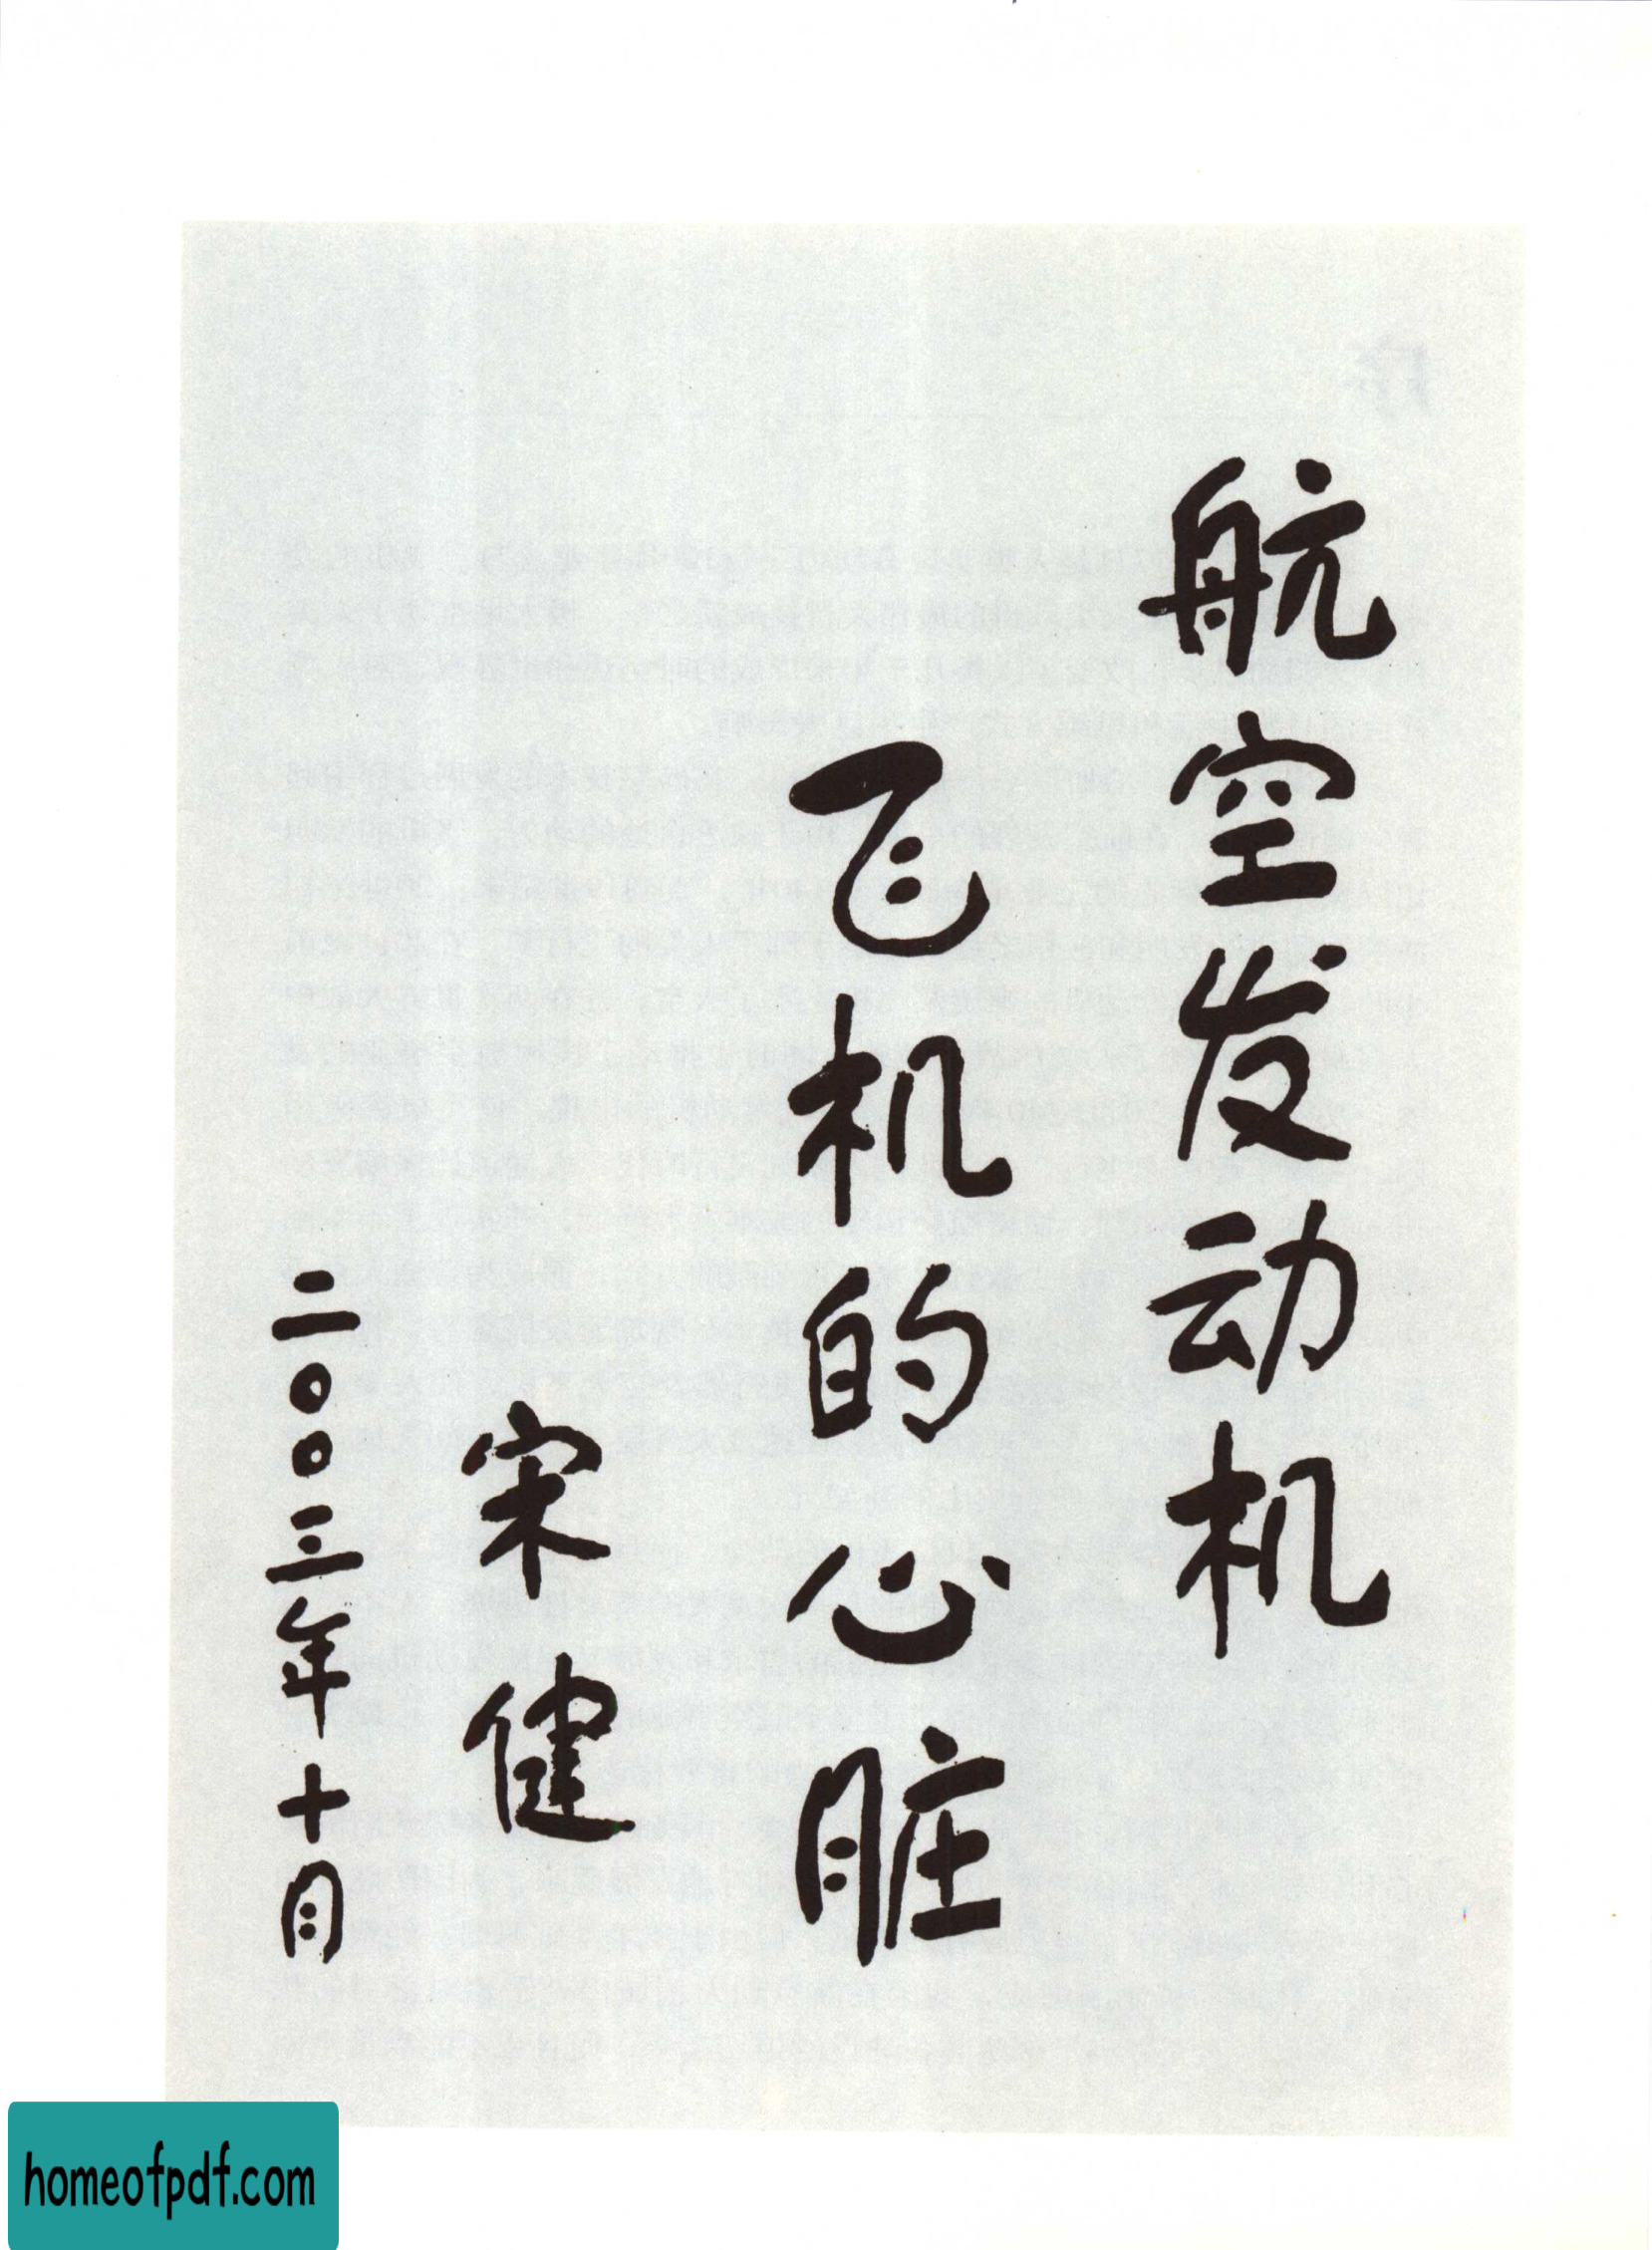 航空发动机
飞机的心脏
宋健
二〇〇三年十月
homeofpdf.com